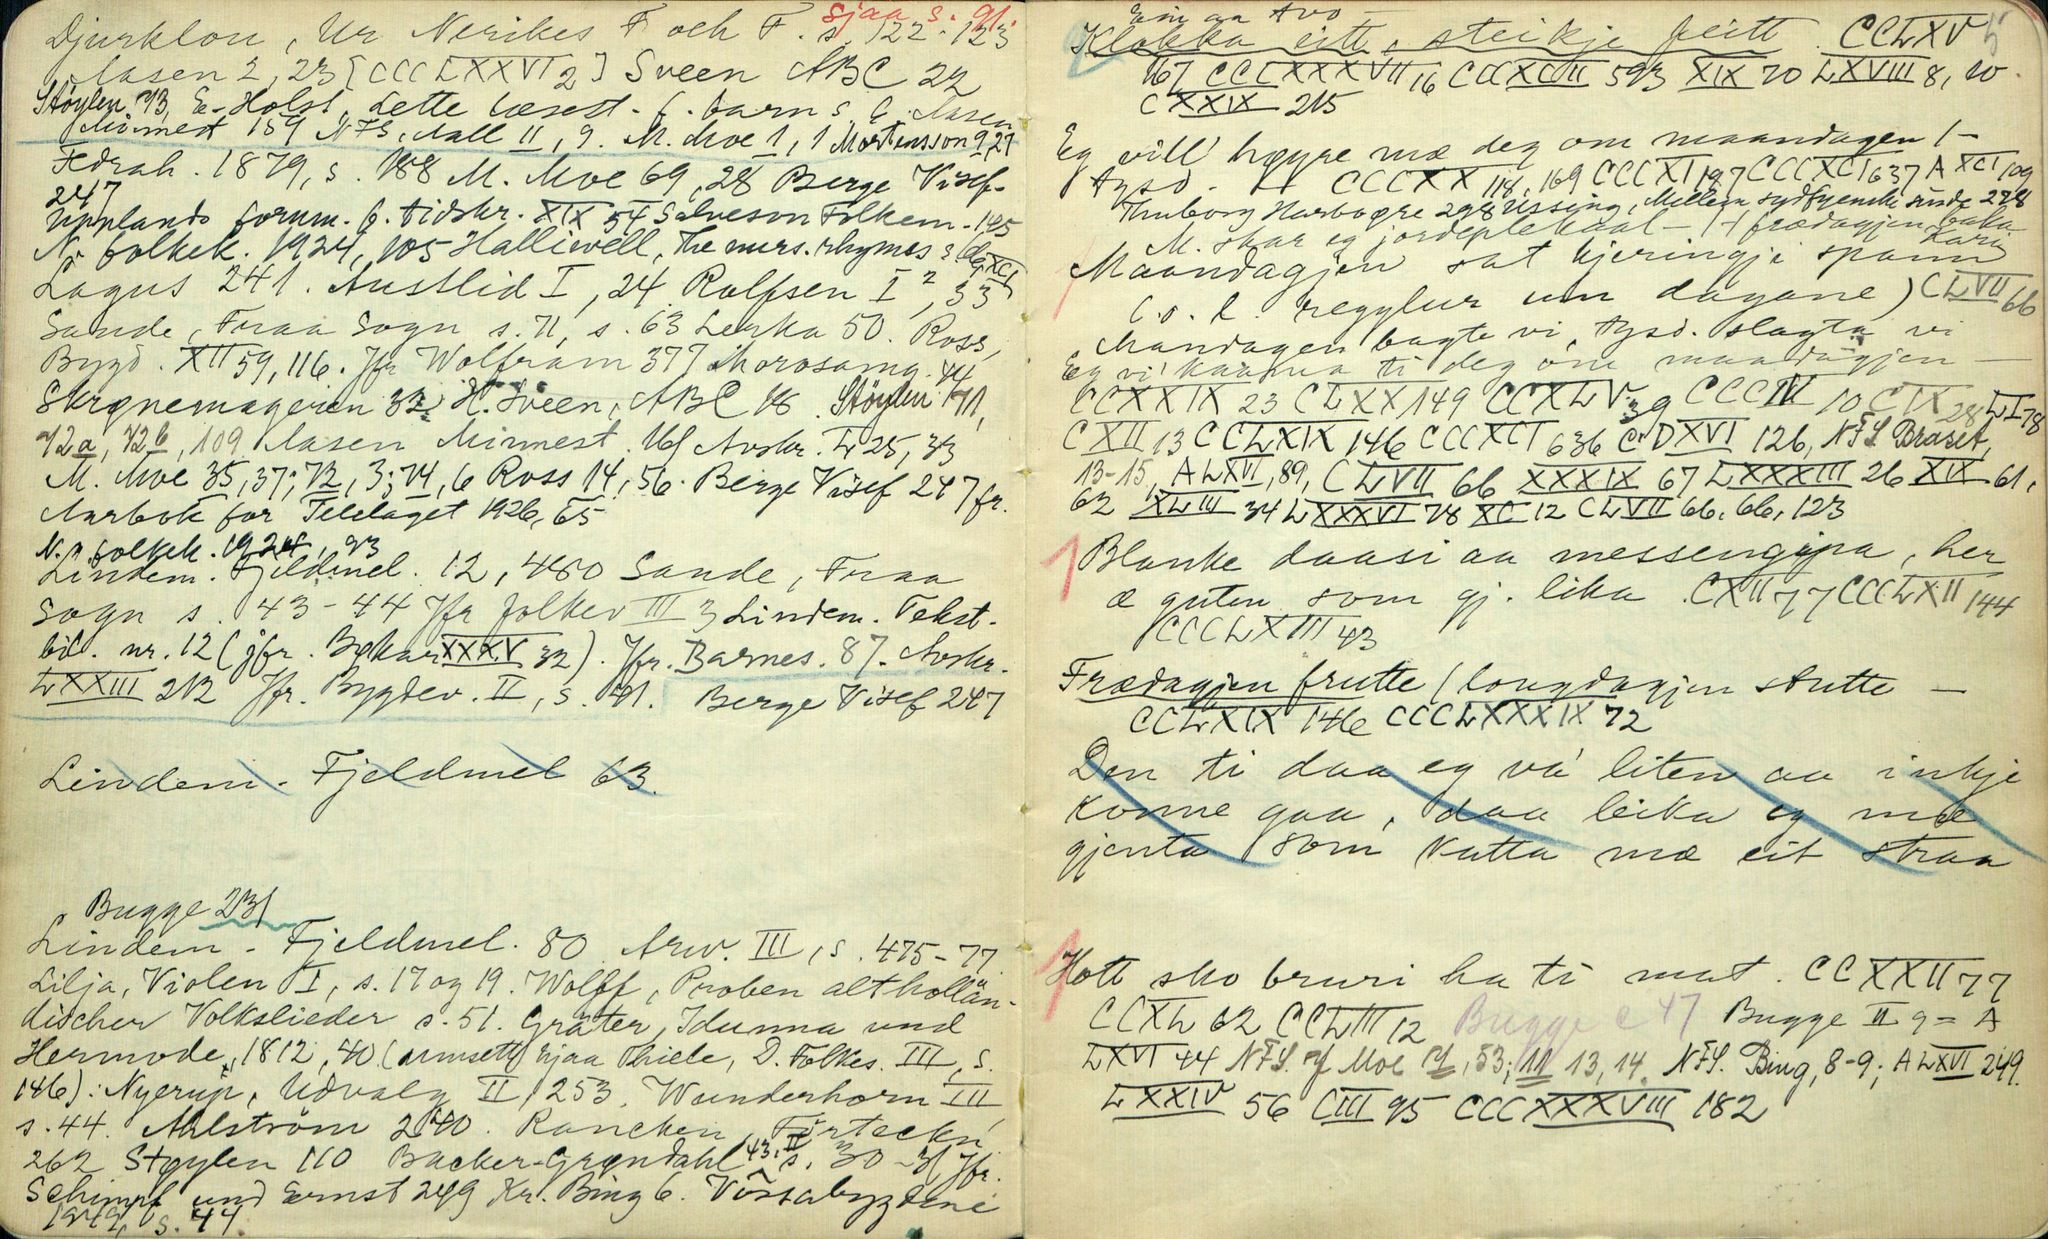 sjaa s. 91.
Djurklou, Ur Nerikes F och F. s. 122-123
Aasen 2, 23 [CCCLXXVI 2] Sveen ABC 22
Støylen 13, E. Holst, dette læsest. f. barn s. 6. Aasen
Minnest 159 NFS. Aall II, 9. M. Moe 1, 1 Mortensson 9, 27
Fedrah. 1879, s. 188 M. Moe 69, 28 Berge Visef.
247
Upplands fornm. f. tidskr. XIX 54 Salveson Folkem. 145
N. folkek. 1924, 105 Halliwell, The nurs. rhymes
Lagus 241. Austlid I, 24 Rolfsen I 2, 33
Sande, Fraa Sogn s. 71, s. 63 Leska 50. Ross,
Bygd. XII 59, 116. Jfr Wolfram 377 Morosamg. 44
Skrønemageren 32 H. Sveen, ABC 18. Støylen 71,
72a, 72b, 109 Aasen Minnest. 161 Avskr. L 25, 33
M. Moe 35, 37; 72, 3; 74, 6 Ross 14, 56. Berge Visef 247 fr.
Aarbok for Telelaget 1926, 65
N. folkek. 1924, 93
Lindem. Fjeldmel. 12, 480 Sande, Fraa
Sogn s. 43-44 Jfr folkev III 3 Lindem. Tekst-
bil. nr. 12 (jfr. Bøkar XXXV 32). Jfr. Barnes. 87. Avskr.
LXXIII 212 Jfr. Bygdev. II, s. 41. Berge Visef 247
Lindem. Fjeldmel 63.
Bugge 231
Lindem. Fjeldmel. 80 Arw. III, s. 475-77
Lilja, Violen I, s. 17 og 19. Wolff, Proben althollän-
discher Volkslieder s. 51. Gräter, Idunna und
Hermode, 1812, 40 (umsett hjaa Thiele, D. Folkes. III, s.
146): Nyerup, Udvalg II, 253. Wunderhorn III
s. 44. Ahlström 240. Rancken, Forteckn.
262 Støylen 110 Backer-Grøndahl 43, II s. 30-31 Jfr.
Schimpf und Ernst 249 Kr. Bing 6. Vossabygdene
1942, s. 44.
5
Ein aa tvo -
Klokka eitt, steikje feitt. CCLXV
167 CCCXXXVII 16 CCCXCII 593 XIX 70 LXVIII 8, 10.
CXXIX 215
Eg vill høyre mæ deg om maandagen /-
tysd. - CCCXX 118, 169 CCCXI 197 CCCXCI 637 A XCI 109
Thuborg Harboøre 298 Ussing, Mellem sydfyenske sunde 228
M. skar eg jordeplekaal - / frædagjen baka
Maandagjen sat kjeringje spann Kari
(o. l. reglur um dagane) CLVII 66
Mandagen bagte vi, tysd. slagta vi
Eg vi' kaama ti deg om maandagjen -
CCXXIX 23 CLXX 149 CCXLV 39 CCCIV 10 CIX 28 LI 78
CXII 13 CCLXIX 146 CCCXCI 636 CDXVI 126, NFS Braset,
13-15, A LXVI, 89, CLVII 66 XXXIX 67 LXXXIII 26 XIX 61,
62 XLIII 34 LXXXVI 78 XC 12 CLVII 66, 66, 123
Blanke daasi aa messengjpa, her
æ guten som gj. lika. CXII 77 CCCLXII 144
CCCLXIII 43
Frædagjen frutte / longdagjen stutte -
CCLXIX 146 CCCLXXXIX 72
Den ti daa eg va' liten aa inkje
konne gaa, daa leika eg mæ
gjenta som vatta mæ eit straa
Hott sko bruri ha ti mat. CCXXII 77
CCXL 62 CCLIII 12 Bugge c 47 Bugge II 9 = A
LXVI 44 NFS. M Moe 4, 53; 11 13, 14. NFS. Bing, 8-9; A LXVI 249.
LXXIV 56 CIII 95 CCCXXXVIII 182